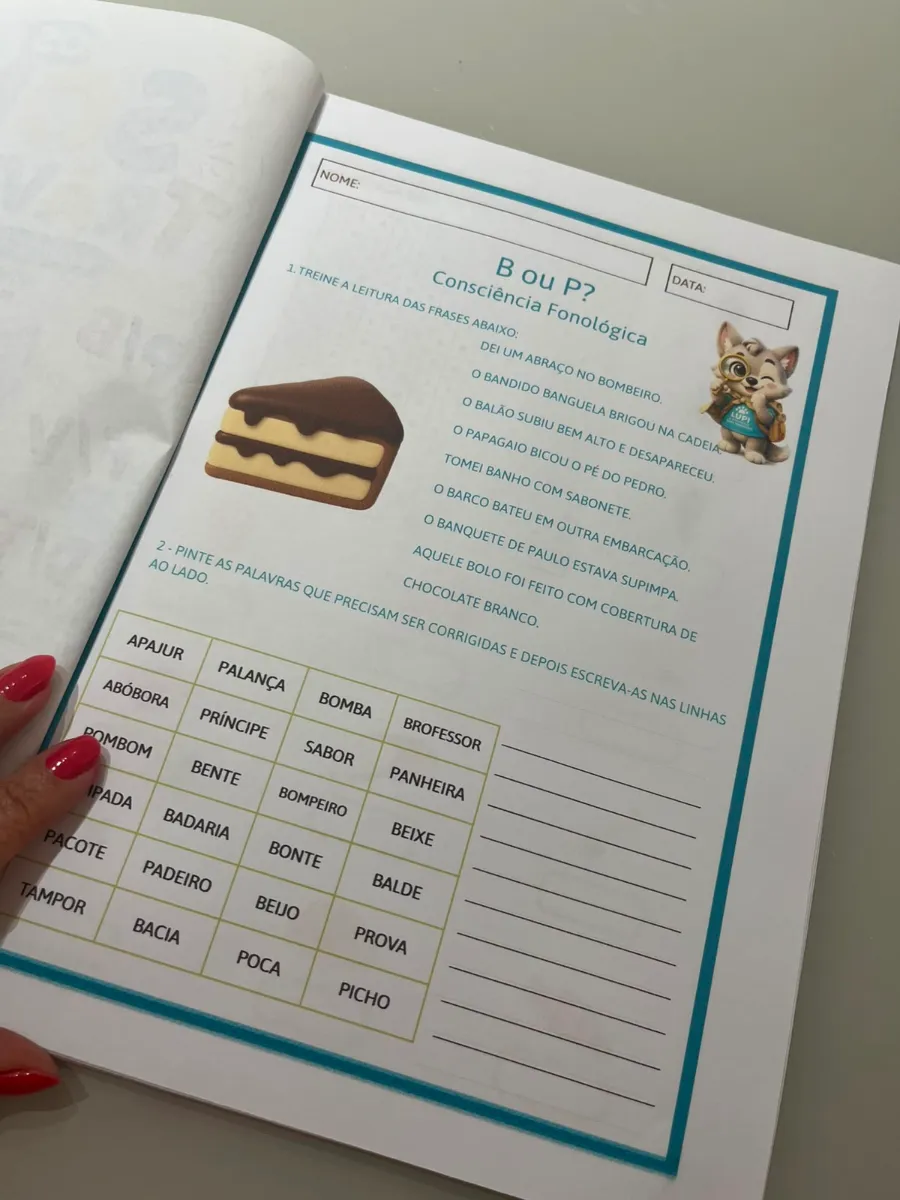 NOME:
DATA:
B ou P?
Consciência Fonológica
1. TREINE A LEITURA DAS FRASES ABAIXO:
DEI UM ABRAÇO NO BOMBEIRO.
O BANDIDO BANGUELA BRIGOU NA CADEIA.
O BALÃO SUBIU BEM ALTO E DESAPARECEU.
O PAPAGAIO BICOU O PÉ DO PEDRO.
TOMEI BANHO COM SABONETE.
O BARCO BATEU EM OUTRA EMBARCAÇÃO.
O BANQUETE DE PAULO ESTAVA SUPIMPA.
AQUELE BOLO FOI FEITO COM COBERTURA DE
CHOCOLATE BRANCO.
LUPI
2 - PINTE AS PALAVRAS QUE PRECISAM SER CORRIGIDAS E DEPOIS ESCREVA-AS NAS LINHAS
AO LADO.
APAJUR PALANÇA BOMBA BROFESSOR
ABÓBORA PRÍNCIPE SABOR PANHEIRA
POMBOM BENTE BOMPEIRO BEIXE
IPADA BADARIA BONTE BALDE
PACOTE PADEIRO BEIJO PROVA
TAMPOR BACIA POCA PICHO